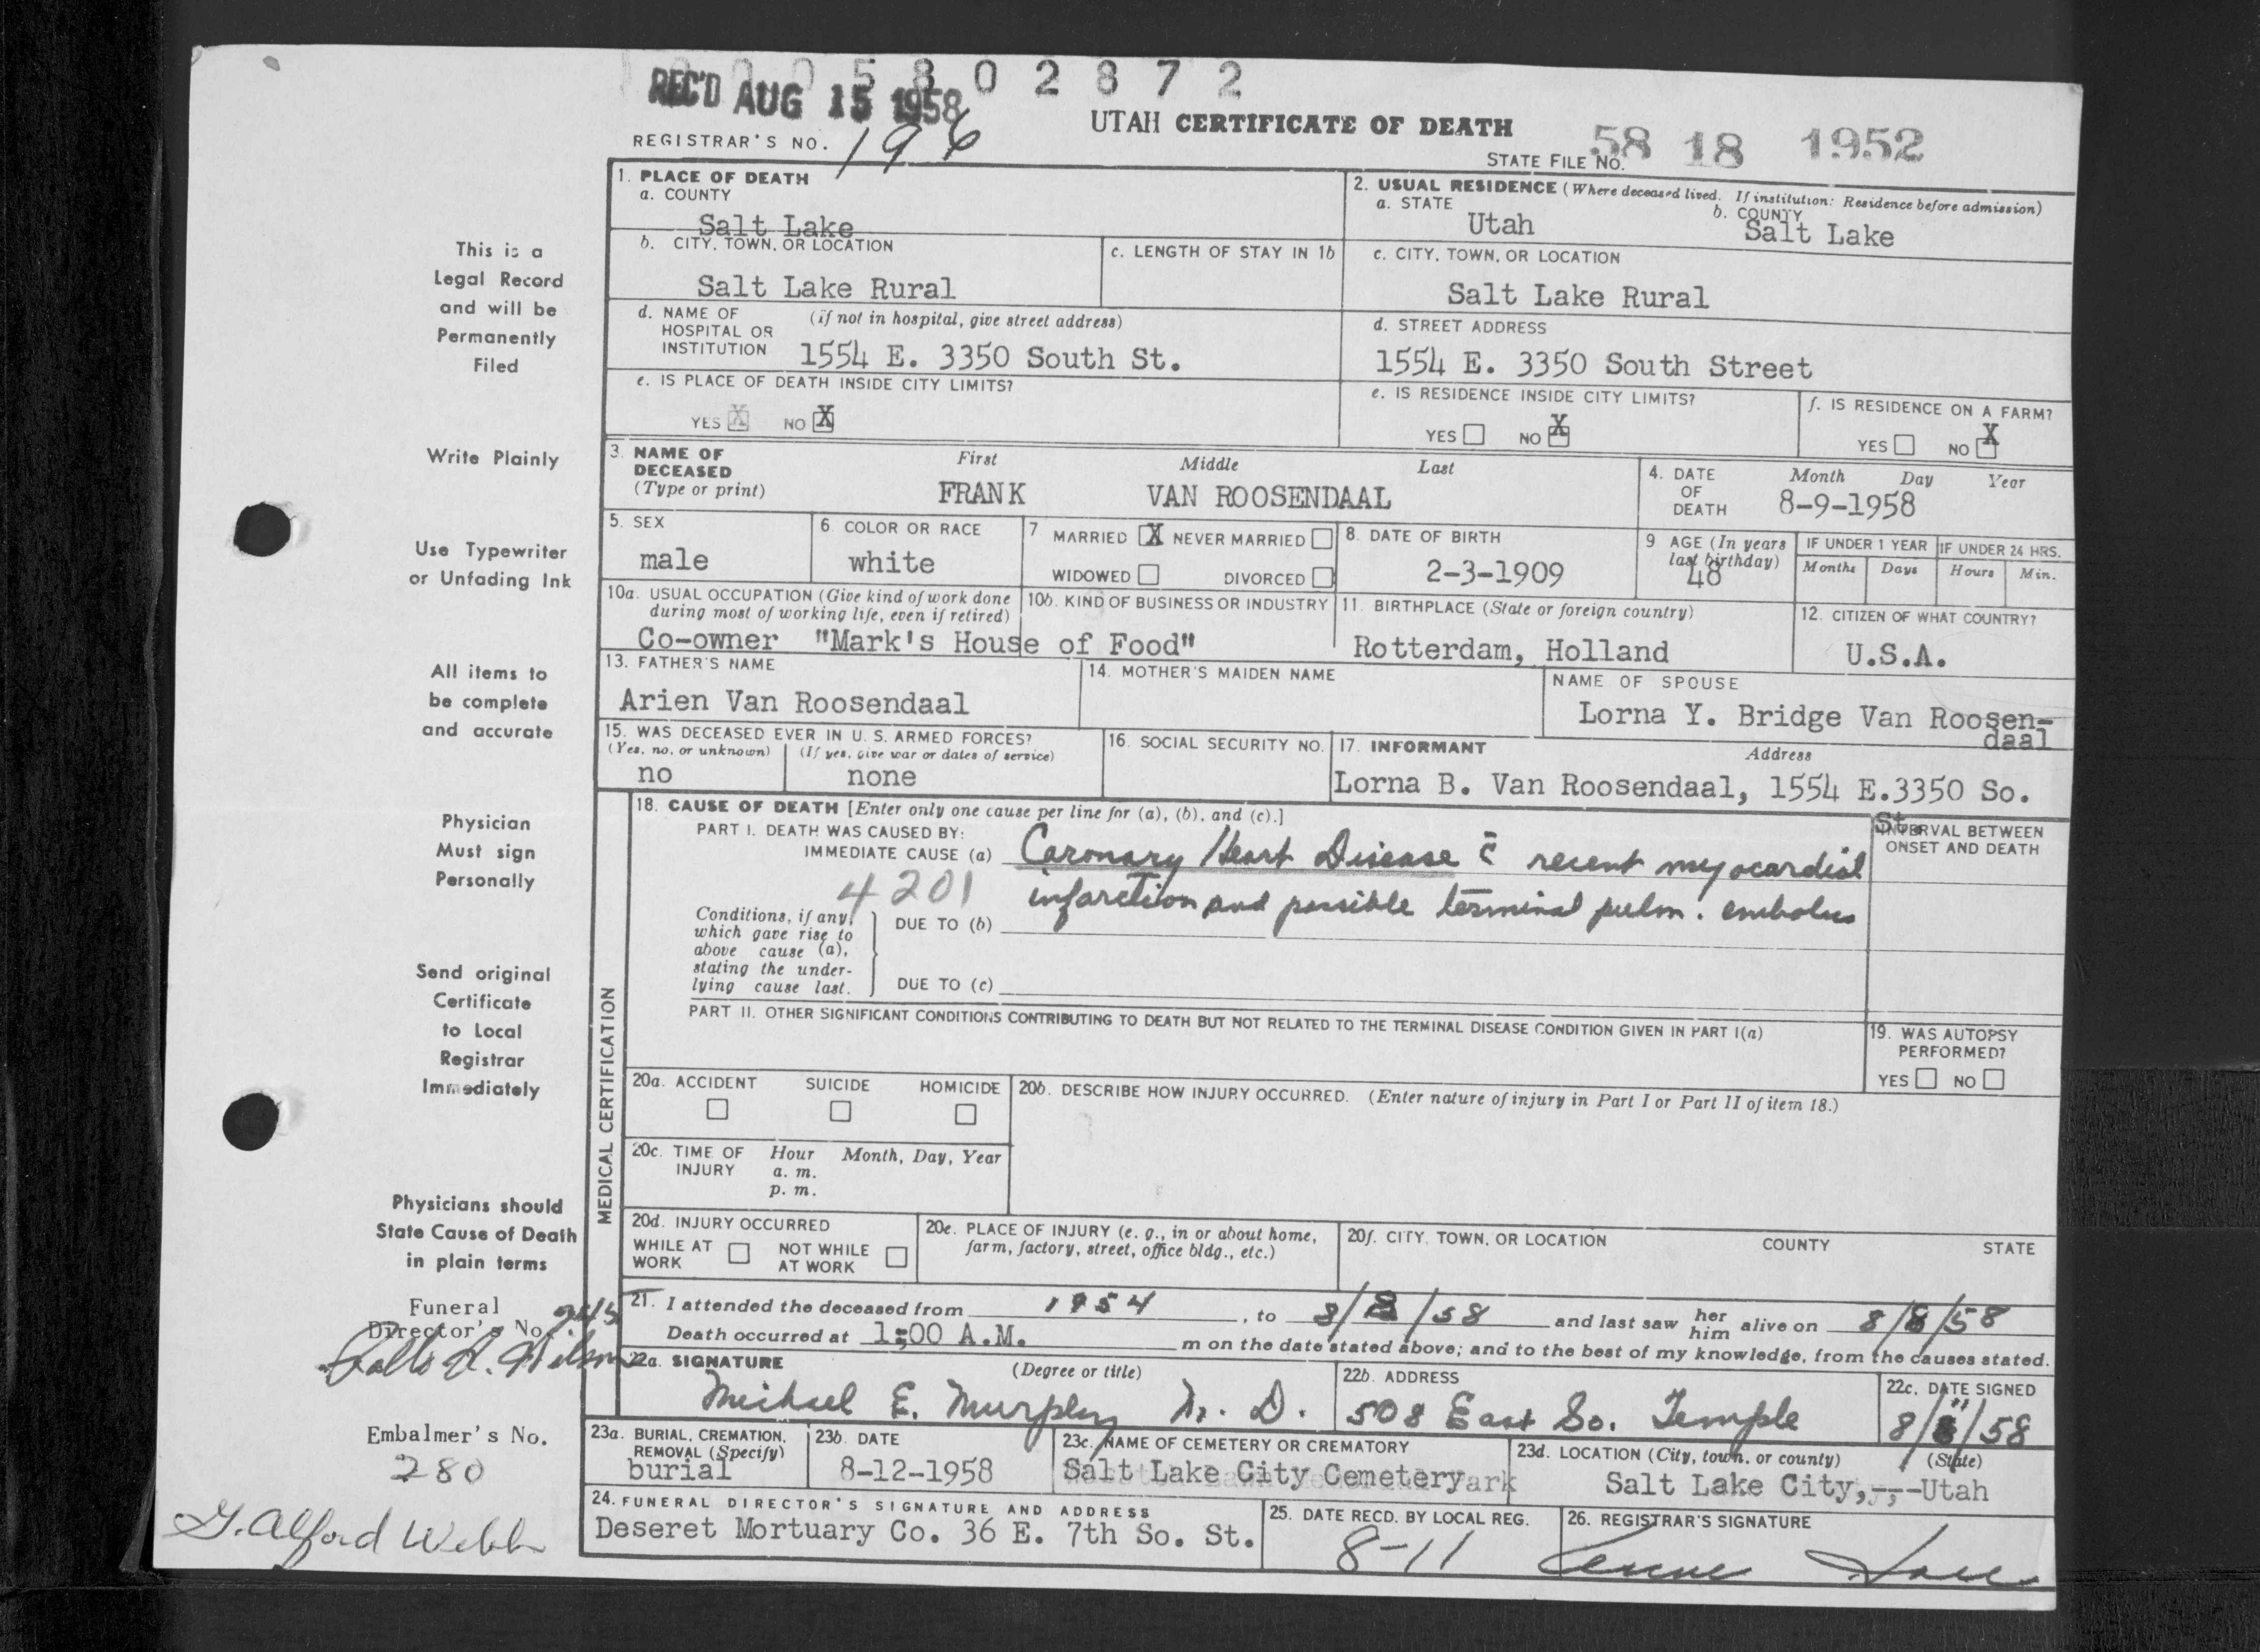 5 8 0 2 8 7 2
REC'D AUG 15 1958
UTAH CERTIFICATE OF DEATH
REGISTRAR'S NO. 196
STATE FILE NO. 58 18 1952
1. PLACE OF DEATH
a. COUNTY
Salt Lake
2. USUAL RESIDENCE (Where deceased lived. If institution: Residence before admission)
a. STATE
Utah
b. COUNTY
Salt Lake
b. CITY, TOWN, OR LOCATION
Salt Lake Rural
c. LENGTH OF STAY IN 1b
c. CITY, TOWN, OR LOCATION
Salt Lake Rural
d. NAME OF HOSPITAL OR INSTITUTION
(if not in hospital, give street address)
1554 E. 3350 South St.
d. STREET ADDRESS
1554 E. 3350 South Street
e. IS PLACE OF DEATH INSIDE CITY LIMITS?
YES X NO X
e. IS RESIDENCE INSIDE CITY LIMITS?
YES NO X
f. IS RESIDENCE ON A FARM?
YES NO X
3. NAME OF DECEASED (Type or print)
First Middle Last
FRANK VAN ROOSENDAAL
4. DATE OF DEATH
Month Day Year
8-9-1958
5. SEX
male
6. COLOR OR RACE
white
7 MARRIED X NEVER MARRIED
WIDOWED DIVORCED
8. DATE OF BIRTH
2-3-1909
9 AGE (In years last birthday)
48
IF UNDER 1 YEAR
Months Days
IF UNDER 24 HRS.
Hours Min.
10a. USUAL OCCUPATION (Give kind of work done during most of working life, even if retired)
10b. KIND OF BUSINESS OR INDUSTRY
Co-owner "Mark's House of Food"
11. BIRTHPLACE (State or foreign country)
Rotterdam, Holland
12. CITIZEN OF WHAT COUNTRY?
U.S.A.
13. FATHER'S NAME
Arien Van Roosendaal
14. MOTHER'S MAIDEN NAME
NAME OF SPOUSE
Lorna Y. Bridge Van Roosen-
daal
15. WAS DECEASED EVER IN U. S. ARMED FORCES?
(Yes, no, or unknown) (If yes, give war or dates of service)
no none
16. SOCIAL SECURITY NO.
17. INFORMANT Address
Lorna B. Van Roosendaal, 1554 E.3350 So.
St.
18. CAUSE OF DEATH [Enter only one cause per line for (a), (b), and (c).]
PART I. DEATH WAS CAUSED BY:
IMMEDIATE CAUSE (a) Coronary Heart Disease c̄ recent myocardial
4201 infarction and possible terminal pulm. embolus
INTERVAL BETWEEN
ONSET AND DEATH
Conditions, if any,
which gave rise to
above cause (a),
stating the under-
lying cause last.
DUE TO (b)
DUE TO (c)
PART II. OTHER SIGNIFICANT CONDITIONS CONTRIBUTING TO DEATH BUT NOT RELATED TO THE TERMINAL DISEASE CONDITION GIVEN IN PART I(a)
19. WAS AUTOPSY
PERFORMED?
YES NO
20a. ACCIDENT SUICIDE HOMICIDE
20b. DESCRIBE HOW INJURY OCCURRED. (Enter nature of injury in Part I or Part II of item 18.)
20c. TIME OF INJURY
Hour Month, Day, Year
a. m.
p. m.
20d. INJURY OCCURRED
WHILE AT WORK NOT WHILE AT WORK
20e. PLACE OF INJURY (e. g., in or about home,
farm, factory, street, office bldg., etc.)
20f. CITY, TOWN, OR LOCATION COUNTY STATE
21. I attended the deceased from 1954, to 8/8/58 and last saw her him alive on 8/8/58
Death occurred at 1:00 A.M. m on the date stated above; and to the best of my knowledge, from the causes stated.
22a. SIGNATURE (Degree or title)
Michael E. Murphy M. D.
22b. ADDRESS
508 East So. Temple
22c. DATE SIGNED
8/11/58
23a. BURIAL, CREMATION, REMOVAL (Specify)
burial
23b. DATE
8-12-1958
23c. NAME OF CEMETERY OR CREMATORY
Salt Lake City Cemetery
23d. LOCATION (City, town, or county) (State)
Salt Lake City,---Utah
24. FUNERAL DIRECTOR'S SIGNATURE AND ADDRESS
Deseret Mortuary Co. 36 E. 7th So. St.
25. DATE RECD. BY LOCAL REG.
8-11
26. REGISTRAR'S SIGNATURE
MEDICAL CERTIFICATION
This is a
Legal Record
and will be
Permanently
Filed
Write Plainly
Use Typewriter
or Unfading Ink
All items to
be complete
and accurate
Physician
Must sign
Personally
Send original
Certificate
to Local
Registrar
Immediately
Physicians should
State Cause of Death
in plain terms
Funeral
Director's No.
Embalmer's No.
280
G. Alford Webb